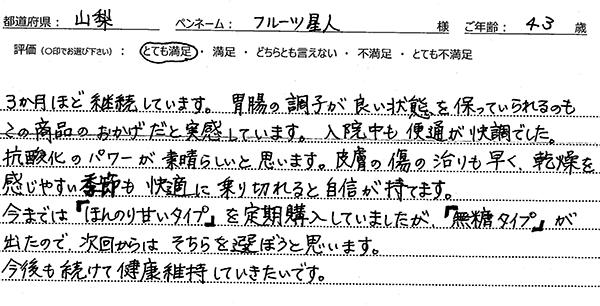 都道府県： 山梨 ペンネーム： フルーツ星人 様 ご年齢： 43 歳
評価（○印でお選び下さい）： とても満足 ・ 満足 ・ どちらとも言えない ・ 不満足 ・ とても不満足
3か月ほど継続しています。胃腸の調子が良い状態を保っていられるのも
この商品のおかげだと実感しています。入院中も便通が快調でした。
抗酸化のパワーが素晴らしいと思います。皮膚の傷の治りも早く、乾燥を
感じやすい季節も快適に乗り切れると自信が持てます。
今までは『ほんのり甘いタイプ』を定期購入していましたが、『無糖タイプ』が
出たので、次回からはそちらを選ぼうと思います。
今後も続けて健康維持していきたいです。